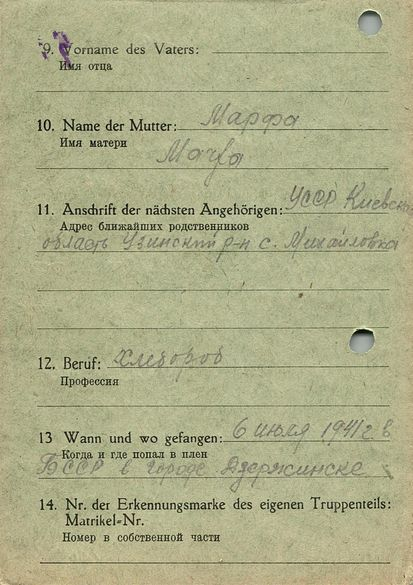 9. Vorname des Vaters:
Имя отца
10. Name der Mutter: Марфа
Имя матери
Marfa
11. Anschrift der nächsten Angehörigen: УССР Киевская
Адрес ближайших родственников
область Узинский р-н с. Михайловка
12. Beruf: хлебороб
Профессия
13 Wann und wo gefangen: 6 июля 1941 г. в
Когда и где попал в плен
БССР в городе Дзержинске
14. Nr. der Erkennungsmarke des eigenen Truppenteils:
Matrikel=Nr.
Номер в собственной части